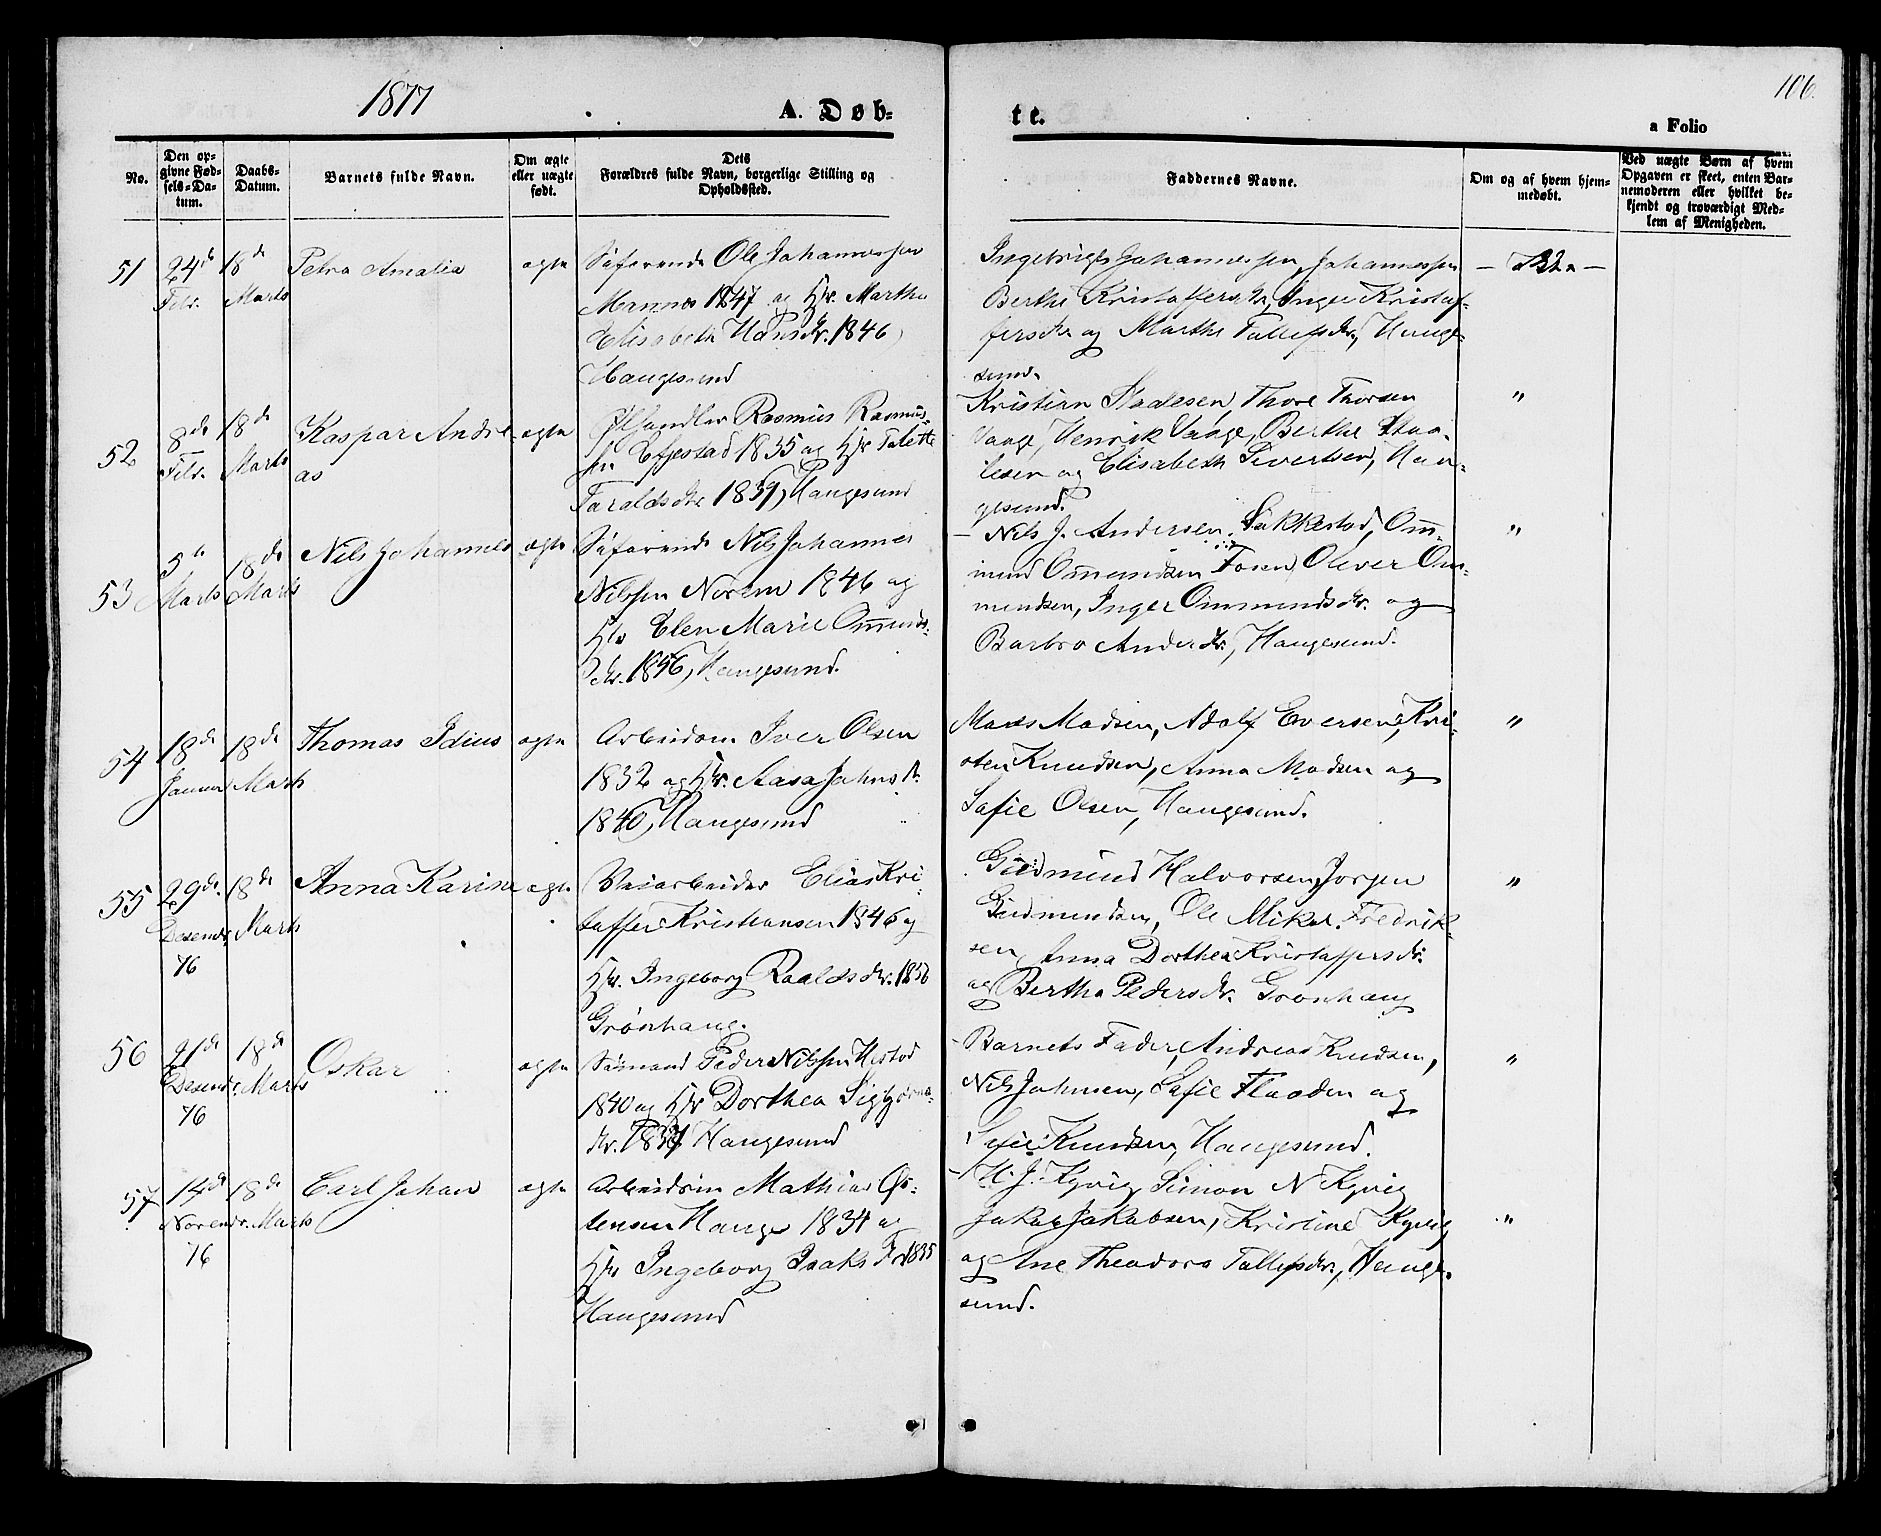 1877
A. Døb-
te.
106.
a Folio
No.
Den op-
givne Fød-
sels-Da-
tum.
Daabs-
Datum.
Barnets fulde Navn.
Om ægte
eller uægte
født.
Dets
Forældres fulde Navn, borgerlige Stilling og
Opholdssted.
Faddernes Navne.
Om og af hvem hjem-
medøbt.
Ved uægte Børn af hvem
Opgaven er skeet, enten Bar-
nemoderen eller hvilket be-
kjendt og troværdigt Med-
lem af Menigheden.
51
24de
Febr.
18de
Marts
Petra Amalia
ægte
Søfarende Ole Johannessen
1847 og Hr. Martha
Elisabeth Hansdr. 1846,
Haugesund
Ingebrigt Johannessen, Johannessen
Berthe Kristoffersdr, Inger Kristof-
fersdr og Marthe Tollefsdr, Hauge-
sund.
52
8de
Febr.
18de
Marts
Kaspar Andre
as
ægte
Rasmus Rasmus-
sen 1835 og Hr Talette
Taraldsdr 1839, Haugesund
Kristian Stolesen, Thore Thorsen
Vaage, Henrik Vaage, Berthe
og Elisabeth Sivertsen, Hau-
gesund.
"
53
5te
Marts
18de
Marts
Nils Johannes
ægte
Søfarende Nils Johannes
Nilssen Norem 1846 og
Hr Elen Marie Ommunds-
dr. 1856, Haugesund.
- Nils J. Andersen, Sakkestad, Om-
mund Ommundsen, Oliver Om-
mundsen, Inger Ommundsdr. og
Barbro Andersdr, Haugesund.
"
54
18de
Januar
18de
Marts
Thomas Idius
ægte
Arbeidsm. Iver Olsen
1832 og Hr. Aasa Johnsdr.
1840, Haugesund
Mads Madsen, Adolf Eversen, Kri-
sten Knudsen, Anna Madsen og
Safie Olsen, Haugesund.
"
55
29de
Desembr.
76
18de
Marts
Anna Karine
ægte
Veiarbeider Elias Kri-
stoffer Kristiansen 1846 og
Hr. Ingeborg Roaldsdr. 1850
Grønhaug.
Gudmund Halvorsen, Jørgen
Gudmundsen, Ole Mikal Fredrik-
sen, Anna Dorthea Kristoffersdr.
og Bertha Pedersdr. Grønhaug
"
56
21de
Desembr.
76
18de
Marts
Oskar
ægte
Sømand Peder Nilssen
1840 og Hr Dorthea Sigbjørns-
dr. Haugesund
- Barnets Fader, Andreas Knudsen,
Nils Johnsen, Safie og
Safie Knudsen, Haugesund.
"
57
14de
Novembr.
76
18de
Marts
Carl Johan
ægte
Arbeidsm Mathias Øs-
tensen Hauge 1834 og
Hr Ingeborg Isaksdr 1835
Haugesund
- H. J. Kyvig, Simon N Kyvig
Jakob Jakobsen, Kristine Kyvig
og Ane Theodora Tollefsdr., Hauge-
sund.
"